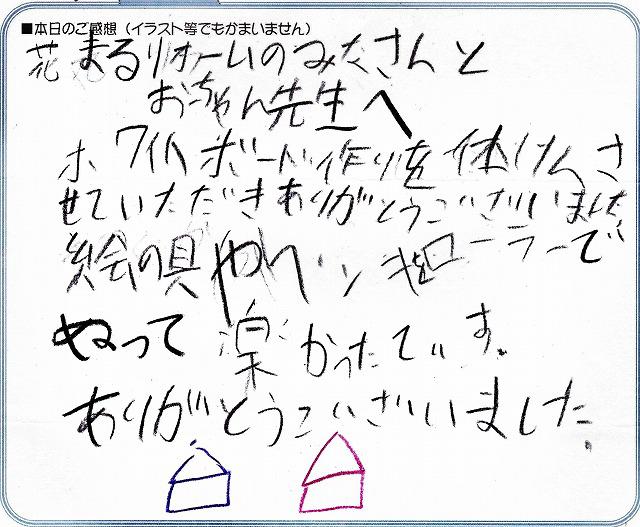 ■本日のご感想(イラスト等でもかまいません)
花まるリォームのみなさんと
おーちゃん先生へ
ホワイトボード作りを体けんさ
せていただきありがとうございました
絵の具やペンキをローラーで
ぬって楽かったです。
ありがとうございました。